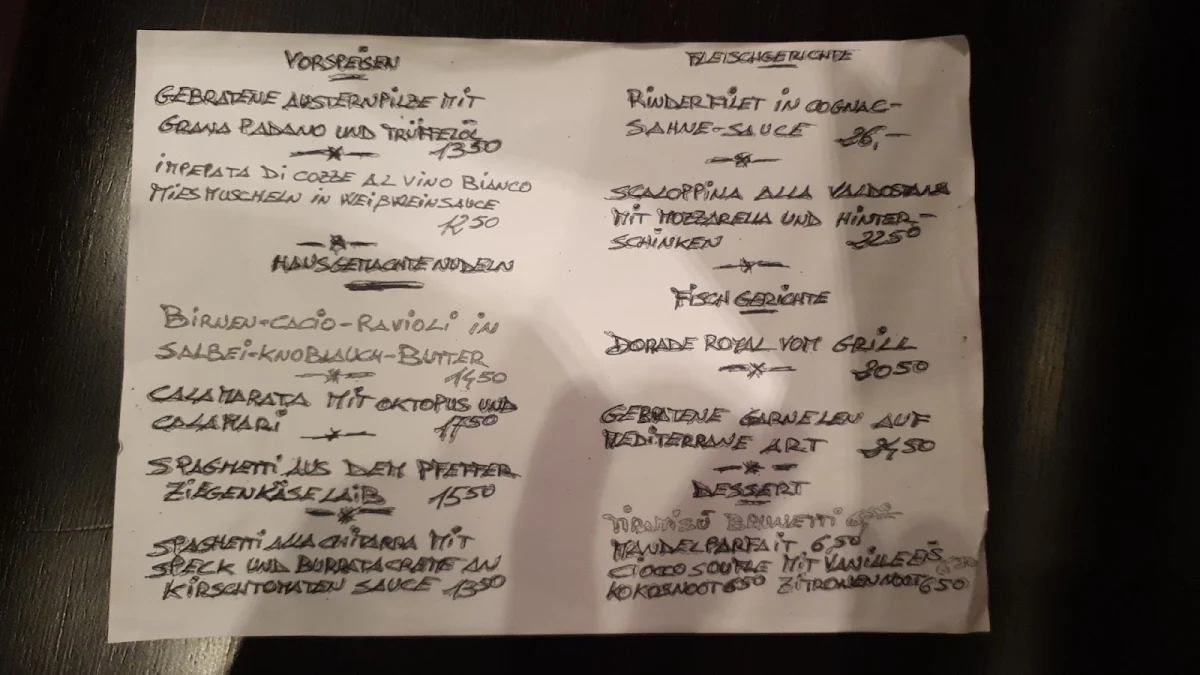 VORSPEISEN
GEBRATENE AUSTERNPILZE MIT
GRANA PADANO UND TRÜFFELÖL
1350
IMPEPATA DI COZZE AL VINO BIANCO
MIESMUSCHELN IN WEIßWEINSAUCE
1250
HAUSGEMACHTE NUDELN
BIRNEN-CACIO-RAVIOLI IN
SALBEI-KNOBLAUCH-BUTTER
1450
CALAMARATA MIT OKTOPUS UND
CALAMARI 1750
SPAGHETTI AUS DEM PFEFFER
ZIEGENKÄSE LAIB 1550
SPAGHETTI ALLA CHITARRA MIT
SPECK UND BURRATACREME AN
KIRSCHTOMATEN SAUCE 1350
FLEISCHGERICHTE
RINDERFILET IN COGNAC-
SAHNE-SAUCE 26,-
SCALOPPINA ALLA VALDOSTANA
MIT MOZZARELLA UND HINTER-
SCHINKEN 2250
FISCHGERICHTE
DORADE ROYAL VOM GRILL
2050
GEBRATENE GARNELEN AUF
MEDITERRANE ART 2450
DESSERT
TIRAMISÙ BRUNETTI
MANDELPARFAIT 6,50
CIOCCO SOUFLE MIT VANILLEEIS
KOKOSNOOT 650 ZITRONENNOOT 650